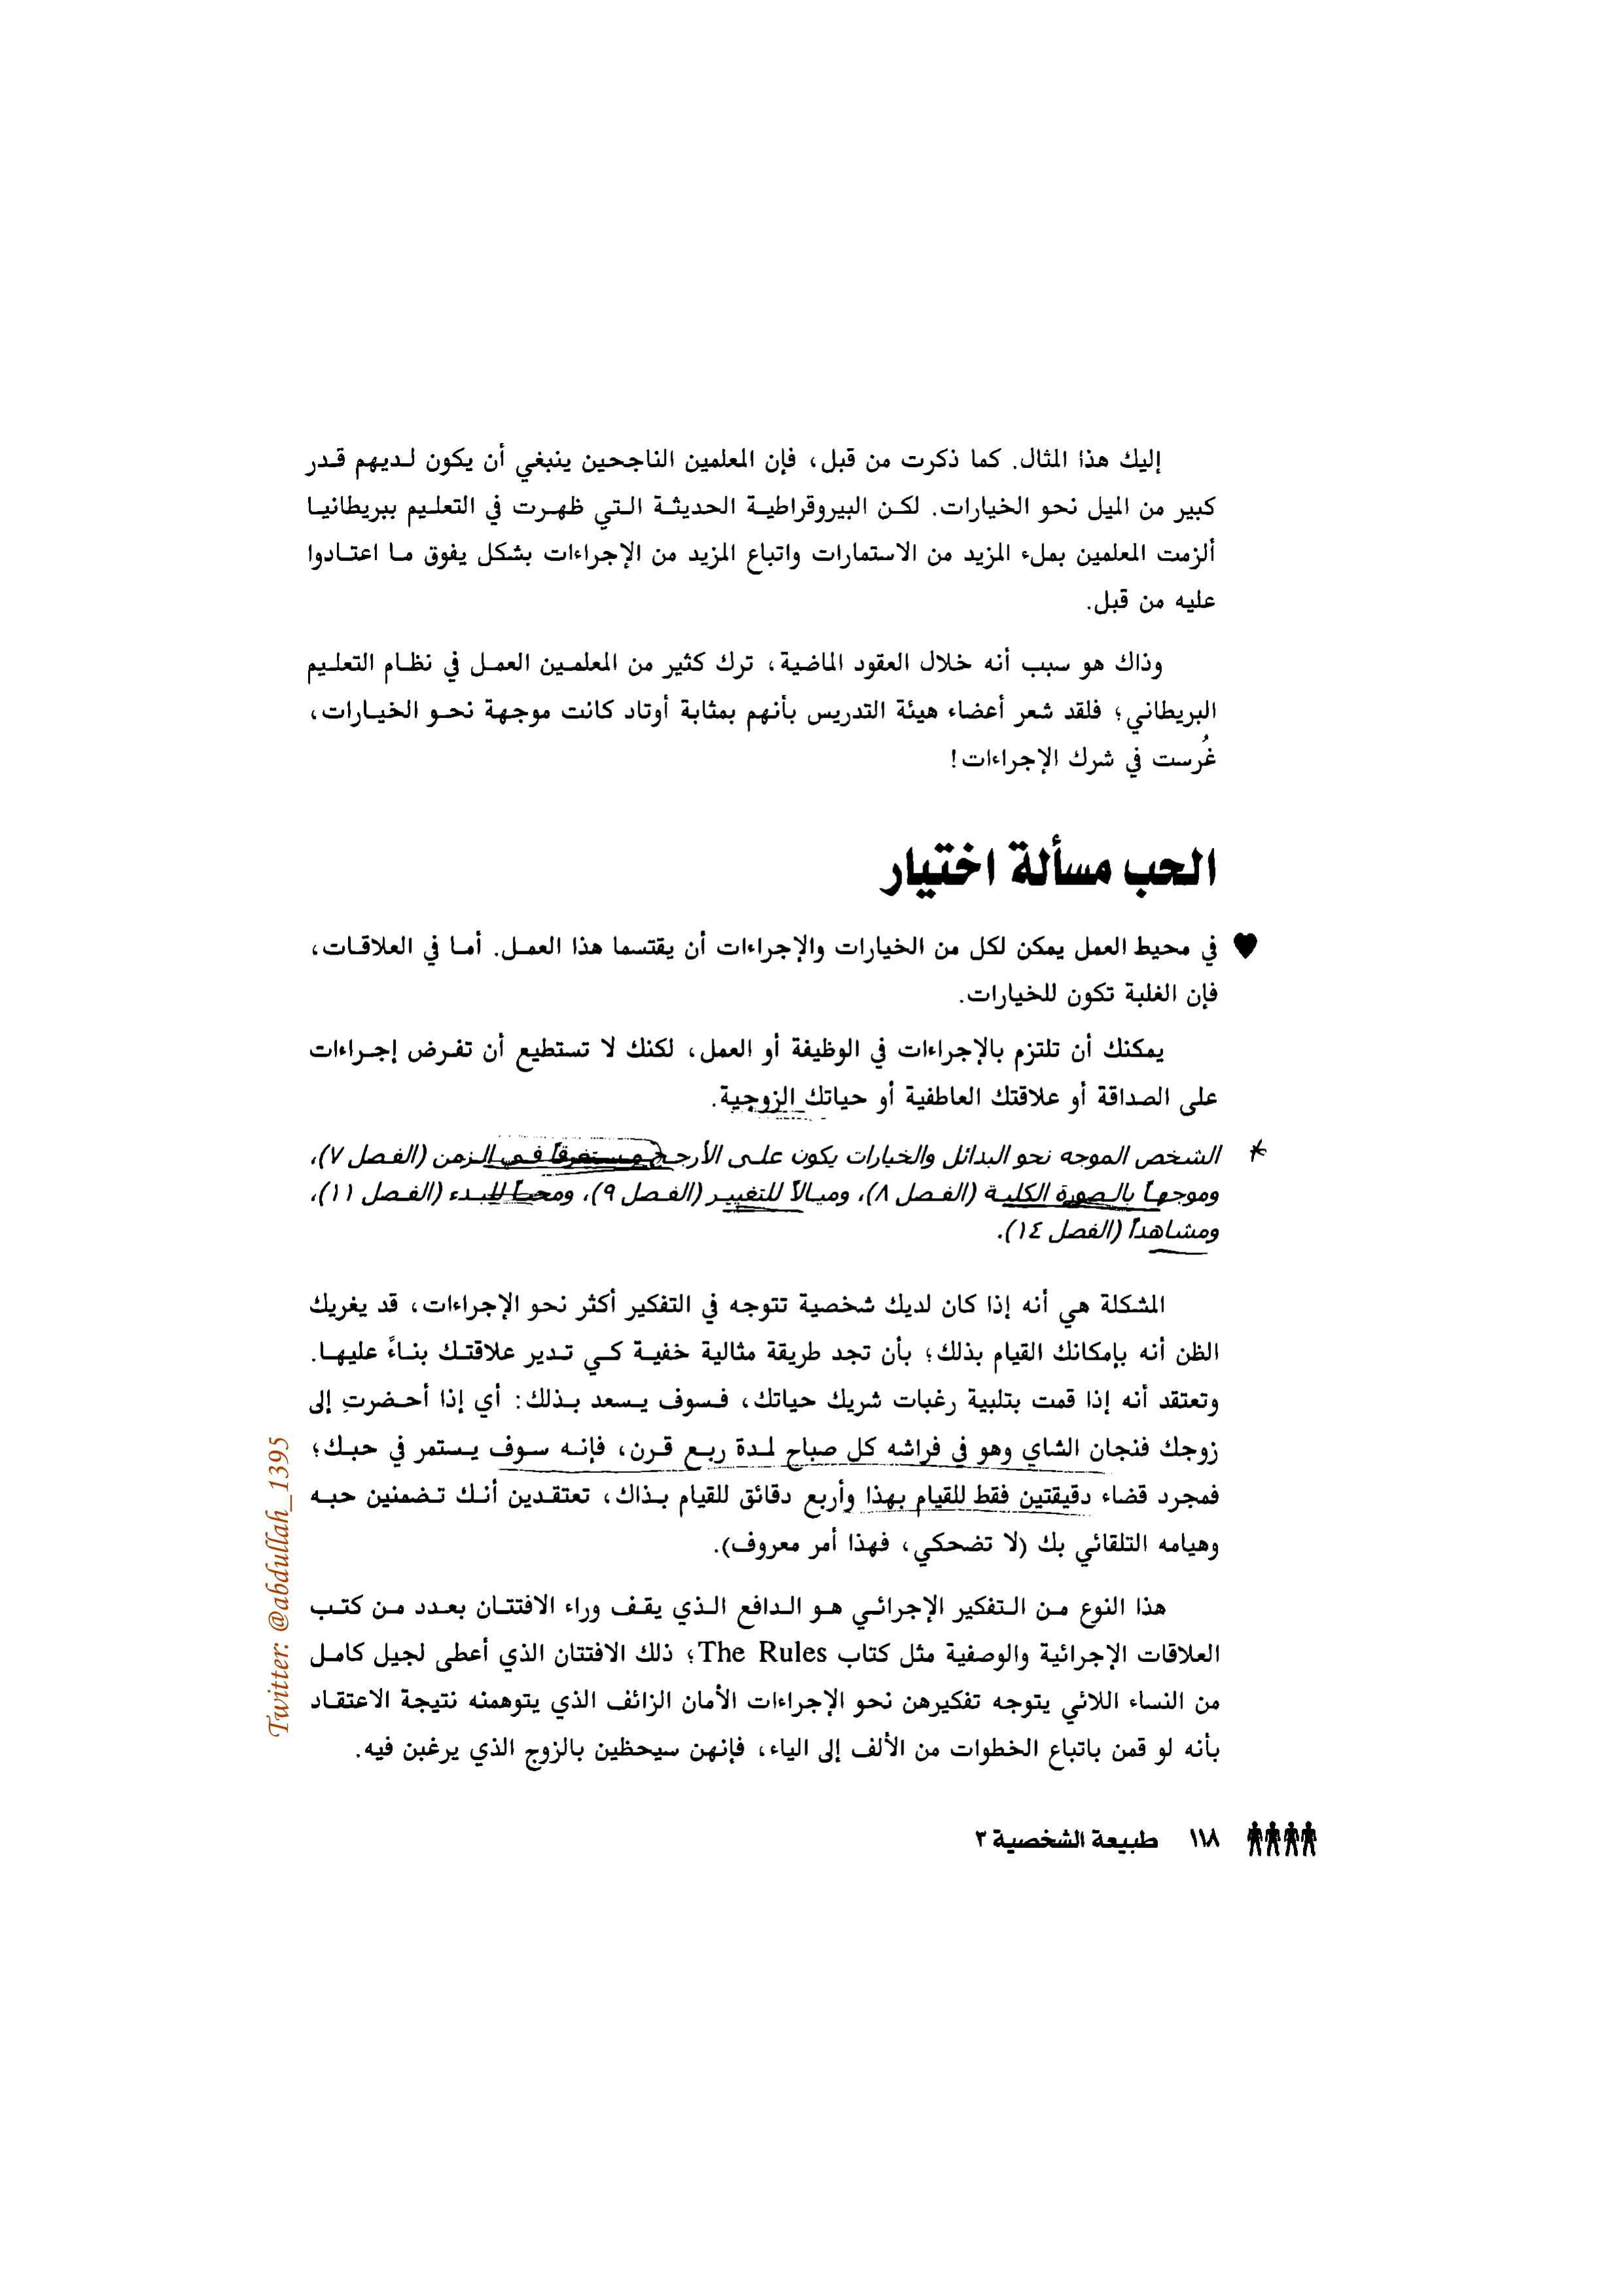 إليك هذا المثال. كما ذكرت من قبل، فإن المعلمين الناجحين ينبغي أن يكون لديهم قدر
كبير من الميل نحو الخيارات. لكن البيروقراطية الحديثة التي ظهرت في التعليم ببريطانيا
ألزمت المعلمين بملء المزيد من الاستمارات واتباع المزيد من الإجراءات بشكل يفوق ما اعتادوا
عليه من قبل.
وذاك هو سبب أنه خلال العقود الماضية، ترك كثير من المعلمين العمل في نظام التعليم
البريطاني؛ فلقد شعر أعضاء هيئة التدريس بأنهم بمثابة أوتاد كانت موجهة نحو الخيارات،
غُرست في شرك الإجراءات!
الحب مسألة اختيار
♥ في محيط العمل يمكن لكل من الخيارات والإجراءات أن يقتسما هذا العمل. أما في العلاقات،
فإن الغلبة تكون للخيارات.
يمكنك أن تلتزم بالإجراءات في الوظيفة أو العمل، لكنك لا تستطيع أن تفرض إجراءات
على الصداقة أو علاقتك العاطفية أو حياتك الزوجية.
* الشخص الموجه نحو البدائل والخيارات يكون على الأرجح مستغرقاً في الزمن (الفصل ٧)،
وموجهاً بالصورة الكلية (الفصل ٨)، وميالاً للتغيير (الفصل ٩)، ومحباً للبدء (الفصل ١١)،
ومشاهداً (الفصل ١٤).
المشكلة هي أنه إذا كان لديك شخصية تتوجه في التفكير أكثر نحو الإجراءات، قد يغريك
الظن أنه بإمكانك القيام بذلك؛ بأن تجد طريقة مثالية خفية كي تدير علاقتك بناءً عليها.
وتعتقد أنه إذا قمت بتلبية رغبات شريك حياتك، فسوف يسعد بذلك: أي إذا أحضرتِ إلى
زوجك فنجان الشاي وهو في فراشه كل صباح لمدة ربع قرن، فإنه سوف يستمر في حبك؛
فمجرد قضاء دقيقتين فقط للقيام بهذا وأربع دقائق للقيام بذاك، تعتقدين أنك تضمنين حبه
وهيامه التلقائي بك (لا تضحكي، فهذا أمر معروف).
هذا النوع من التفكير الإجرائي هو الدافع الذي يقف وراء الافتتان بعدد من كتب
العلاقات الإجرائية والوصفية مثل كتاب The Rules؛ ذلك الافتتان الذي أعطى لجيل كامل
من النساء اللائي يتوجه تفكيرهن نحو الإجراءات الأمان الزائف الذي يتوهمنه نتيجة الاعتقاد
بأنه لو قمن باتباع الخطوات من الألف إلى الياء، فإنهن سيحظين بالزوج الذي يرغبن فيه.
١١٨ طبيعة الشخصية ٣
Twitter: @abdullah_1395